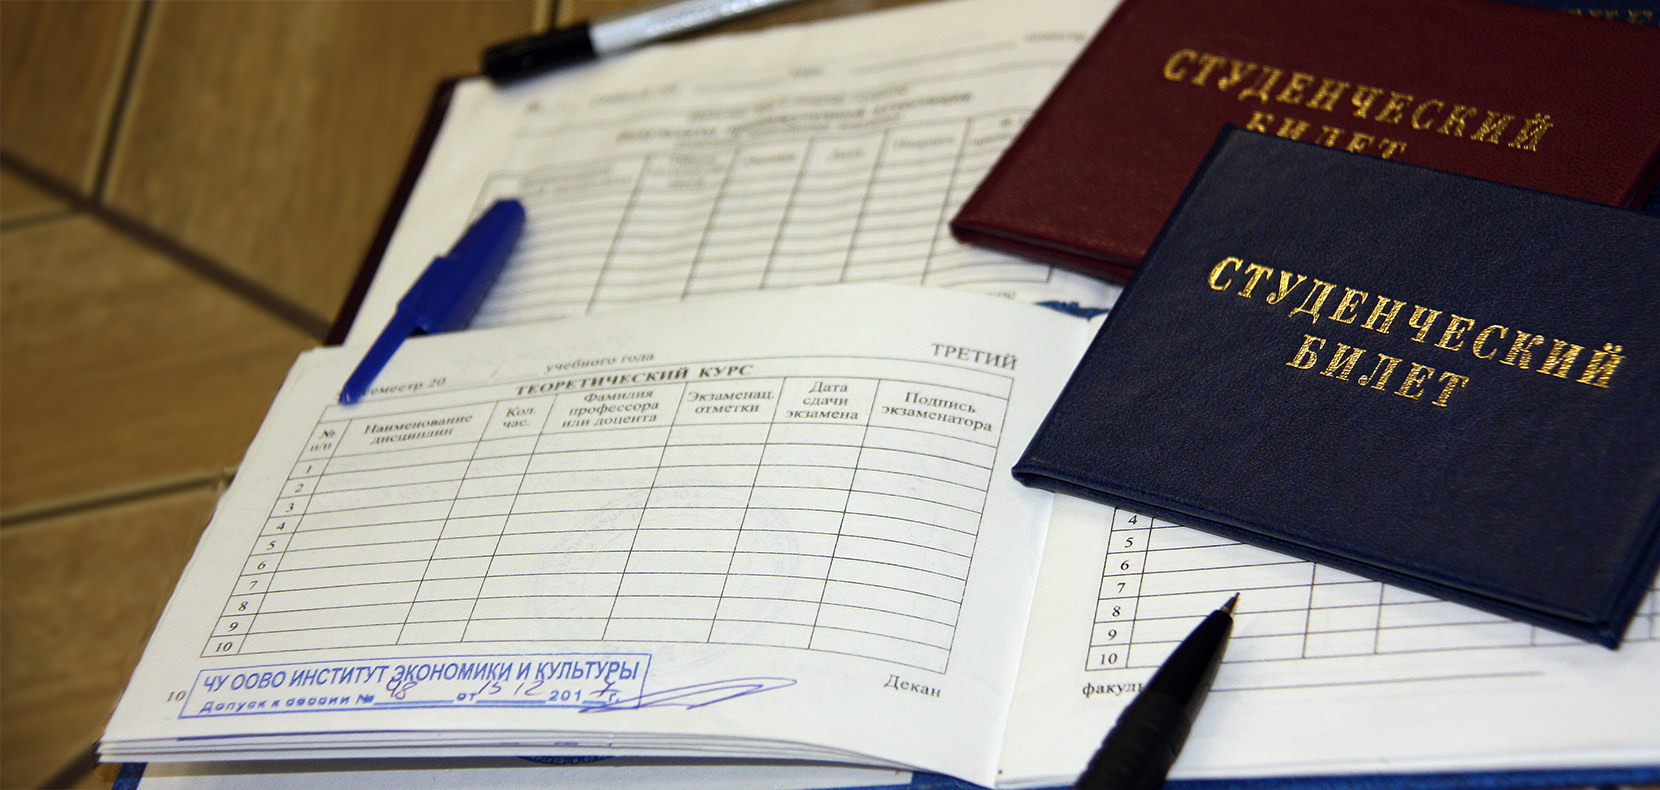 СТУДЕНЧЕСКИЙ
БИЛЕТ
СТУДЕНЧЕСКИЙ
БИЛЕТ
учебного года
ТРЕТИЙ
семестр 20
ТЕОРЕТИЧЕСКИЙ КУРС
№ п/п
Наименование дисциплин
Кол. час.
Фамилия профессора или доцента
Экзаменац. отметки
Дата сдачи экзамена
Подпись экзаменатора
1
2
3
4
5
6
7
8
9
10
Декан
10
ЧУ ООВО ИНСТИТУТ ЭКОНОМИКИ И КУЛЬТУРЫ
Допуск к сессии № 48 от 15 12 2017 г.
4
5
6
7
8
9
10
факуль